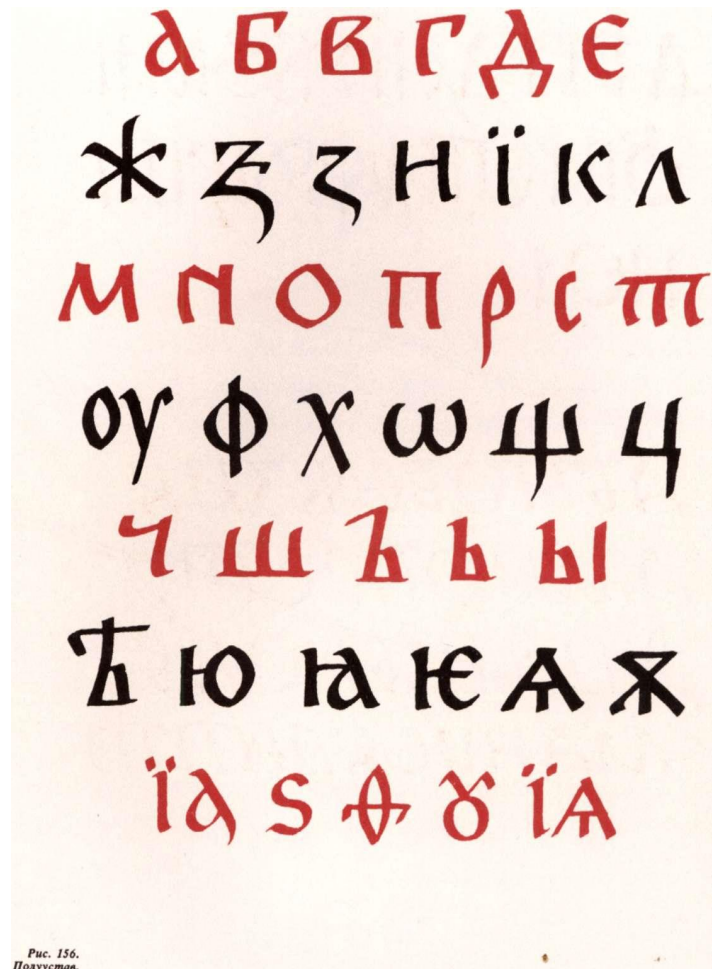 а б в г д є
ж ѯ з н ї к л
м н о п р с т
оу ф х ѡ щ ц
ч ш ъ ь ы
ѣ ю ꙗ ѥ ѧ ѫ
їа ѕ ѳ ꙋ їѧ
Рис. 156.
Полуустав.